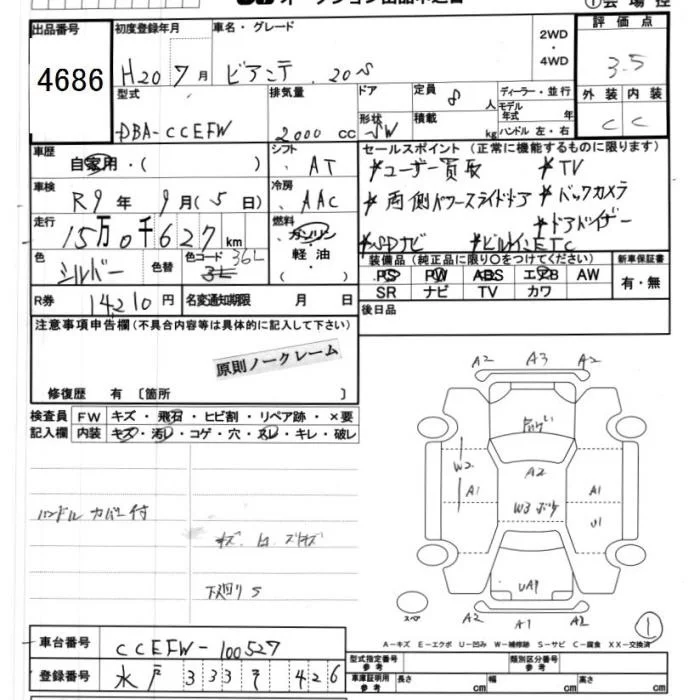 出品番号
4686
初度登録年月
H20年7月
車名・グレード
ビアンテ 20S
2WD
・
4WD
評価点
3.5
外装 内装
C C
型式
DBA-CCEFW
排気量
2000 cc
ドア
形状
SW
定員 8 人
積載 kg
ディーラー・並行
モデル年式 年
ハンドル 左・右
車歴
自家用・( )
シフト AT
車検
R9年 9月(5日)
冷房 AAC
走行
15万0千627km
燃料
ガソリン
軽油
( )
色 シルバー
色替
色コード 36L
R券 14210円
名変通知期限 月 日
セールスポイント(正常に機能するものに限ります)
*ユーザー買取 *TV
*両側パワースライドドア *バックカメラ
*ドアバイザー
*SDナビ *ビルトインETC
装備品(純正品に限り○をつけてください)
PS PW ABS エアB AW
SR ナビ TV カワ
新車保証書
有・無
後日品
注意事項申告欄(不具合内容等は具体的に記入して下さい)
原則ノークレーム
修復歴 有 〔箇所 〕
検査員記入欄
FW キズ・飛石・ヒビ割・リペア跡・×要
内装 キズ・汚レ・コゲ・穴・スレ・キレ・破レ
ハンドルカバー付
下廻りS
A2 A3 A2
W2
A1
A2
W3 ボケ
A1
U1
UA1
A2 A1 A2
スペア
1
A-キズ E-エクボ U-凹み W-補修跡 S-サビ C-腐食 XX-交換済
車台番号 CCEFW-100527
登録番号 水戸 333 そ 426
型式指定番号
参考
類別区分番号
参考
車庫証明用
参考
長さ cm 幅 cm 高さ cm